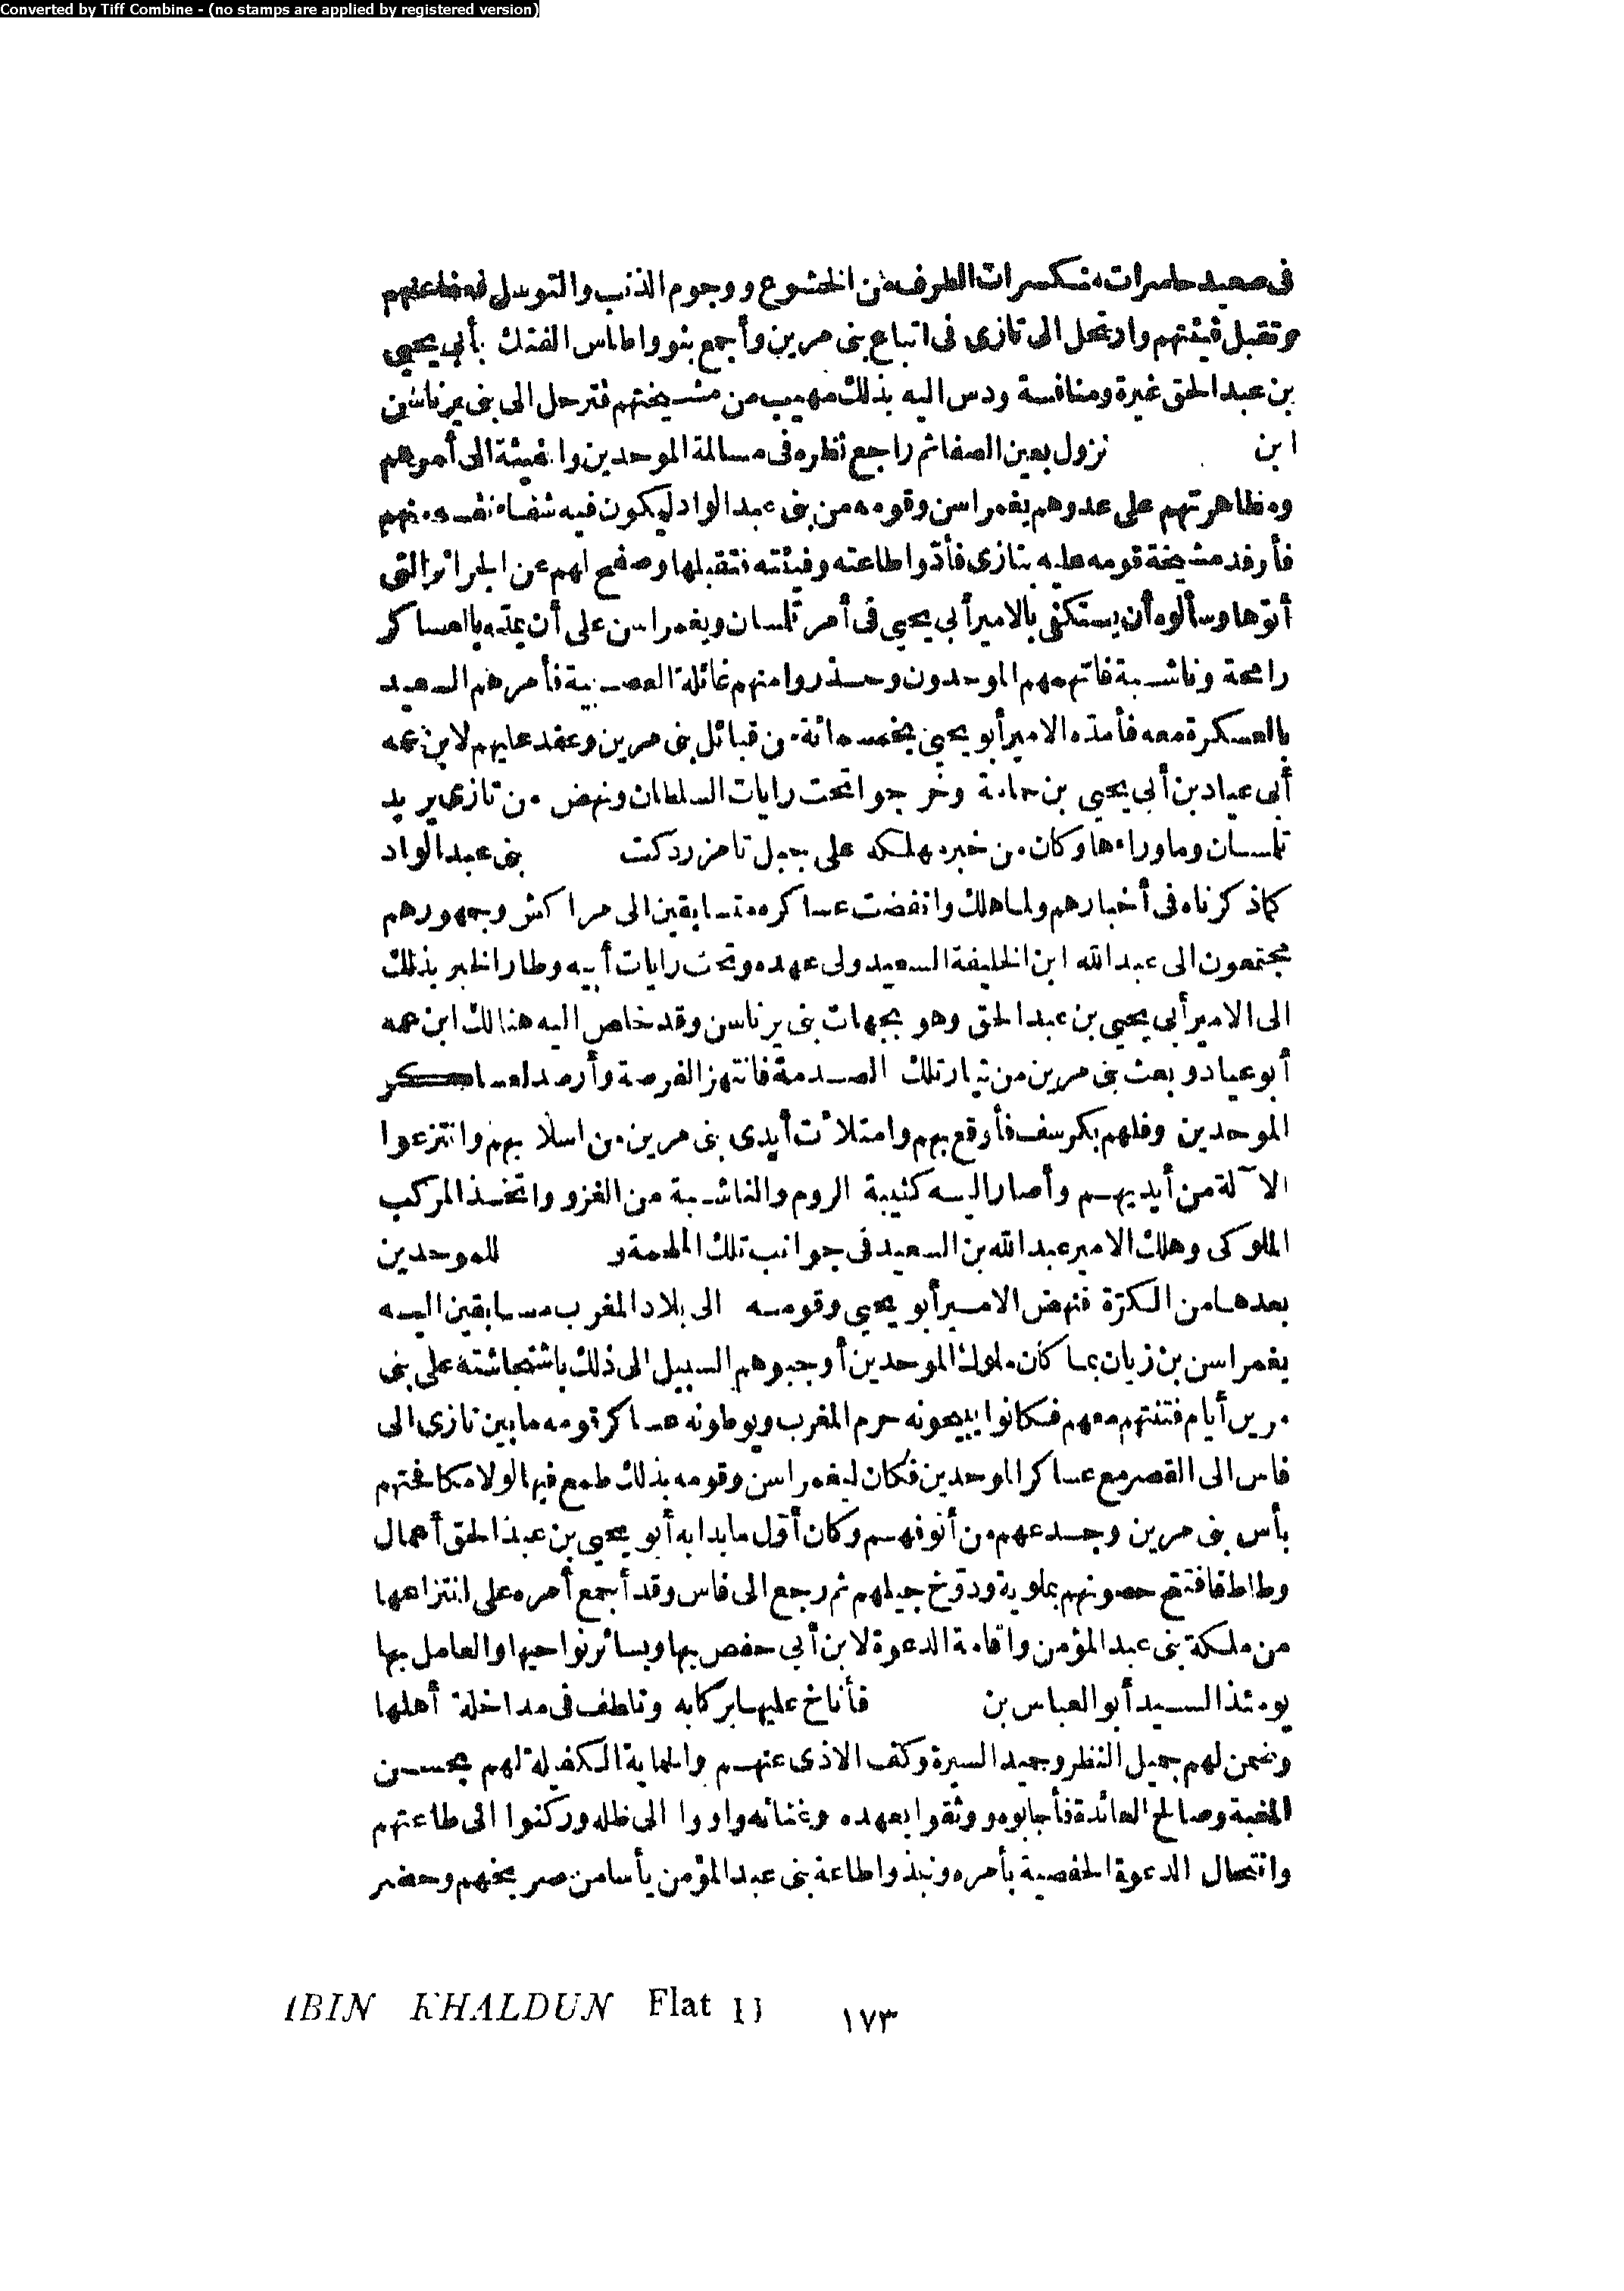 Converted by Tiff Combine - (no stamps are applied by registered version)
فى صعيد حاسرات منكسرات الطرف من الخشوع ووجوم الذنب والتوسل فصفا عنهم
وتقبل فيئتهم وارتحل الى تازى فى اتباع بنى مرين وأجمع بنو واطاس الفتك بأبي يحيى
بن عبد الحق غيرة ومنافسة ودس اليه بذلك مهيب من مشيختهم فترحل الى بنى يرناسن
ابن نزول بعين الصفا ثم راجع نظره فى مسالمة الموحدين والفيئة الى أمرهم
ومظاهرتهم على عدوهم يغمراسن وقومه من بنى عبد الواد ليكون فيه شفاء نفسه منهم
فأوفد مشيخة قومه عليه بتازى فأدّوا طاعته وفيئته فتقبلها وصفح لهم عن الجرائر التى
أتوها وسألوه أن يستكفى بالامير أبي يحيى فى أمر تلمسان ويغمراسن على أن يمدّه بالعساكر
رامحة وناشبة فاتهمهم الموحدون وحذروا منهم غائلة العصبية فأمرهم السعيد
بالعسكرة معه فأمدّه الامير أبو يحيى بخمسمائة من قبائل بنى مرين وعقد عليهم لابن عمه
أبى عياد بن أبي يحيى بن حمامة وخرجوا تحت رايات السلطان ونهض من تازى يريد
تلمسان وما وراءها وكان من خبر مهلكه على جبل تامزردكت بنى عبد الواد
كما ذكرناه فى أخبارهم ولما هلك وانفضت عساكره متسابقين الى مراكش وجمهورهم
مجتمعون الى عبد الله ابن الخليفة السعيد ولى عهده وتحت رايات أبيه وطار الخبر بذلك
الى الامير أبي يحيى بن عبد الحق وهو بجهات بنى يرناسن وقد خلص اليه هنالك ابن عمه
أبو عياد وبعث بنى مرين من تيار تلك الصدمة فانتهز الفرصة وأرصد لعساكر
الموحدين وفلهم بكرسف فأوقع بهم وامتلأت أيدى بنى مرين من اسلابهم وانتزعوا
الآلة من أيديهم وأصار اليه كتيبة الروم والناشبة من الغزو واتخذ المركب
الملوكى وهلك الامير عبد الله بن السعيد فى جوانب تلك الملحمة و للموحدين
بعدها من الكرّة فنهض الامير أبو يحيى وقومه الى بلاد المغرب مسابقين اليه
يغمراسن بن زيان بما كان ملوك الموحدين أوجبوهم السبيل الى ذلك باستجاشته على بنى
مرين أيام فتنتهم معهم فكانوا يبيحونه حرم المغرب ويوطونه عساكر قومه ما بين تازى الى
فاس الى القصر مع عساكر الموحدين فكان ليغمراسن وقومه بذلك طمع فيها لولا مكافحتهم
بأس بنى مرين وجدعهم من أنوفهم وكان أوّل ما بدا به أبو يحيى بن عبد الحق أعمال
وطاط فافتتح حصونهم بملوية ودوّخ جبلهم ثم رجع الى فاس وقد أجمع أمره على انتزاعها
من ملكة بنى عبد المؤمن واقامة الدعوة لابن أبي حفص بها وبسائر نواحيها والعامل بها
يومئذ السيد أبو العباس بن فأناخ عليها بركابه وتلطف فى مداخلة أهلها
وضمن لهم جميل النظر وحميد السيرة وكف الاذى عنهم والحماية الكفيلة لهم بحسن
المغبة وصالح العائدة فأجابوه ووثقوا بعهده وغنائه واووا الى ظله وركنوا الى طاعتهم
وانتحال الدعوة الحفصية بأمره ونبذوا طاعة بنى عبد المؤمن يأسا من صريخهم وحضر
IBIN KHALDUN Flat ١٧٣